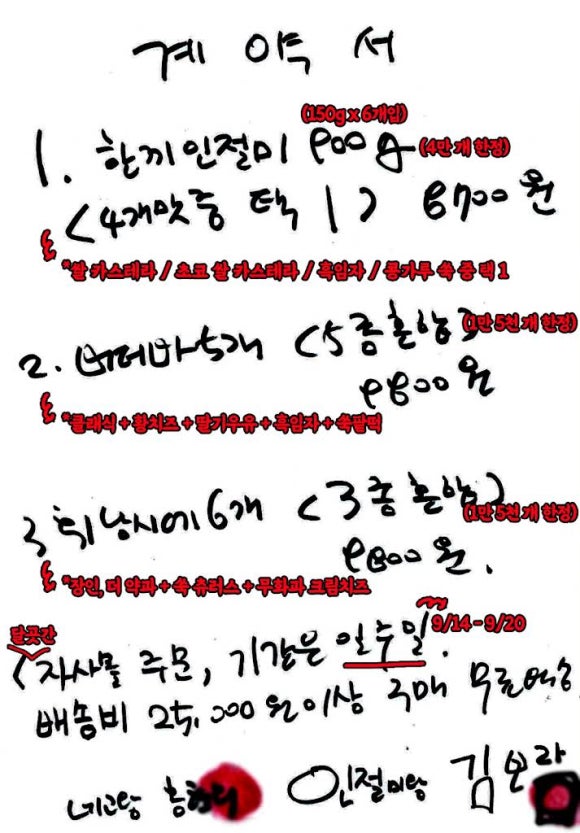 계 약 서
(150g x 6개입)
1. 한끼인절미 900g (4만 개 한정)
<4개맛중 택 1> 8700원
*쌀 카스테라 / 초코 쌀 카스테라 / 흑임자 / 콩가루 쑥 중 택 1
2. 버터바 5개 <5종혼합> (1만 5천 개 한정)
9800원
*클래식 + 황치즈 + 딸기우유 + 흑임자 + 쑥팥떡
3. 휘낭시에 6개 <3종혼합> (1만 5천 개 한정)
9800원.
*장인, 더 약과 + 쑥 츄러스 + 무화과 크림치즈
달곳간 9/14 - 9/20
<자사몰 주문, 기간은 일주일.
배송비 25,000원이상 구매 무료배송
네고왕 인절미랑 김보라